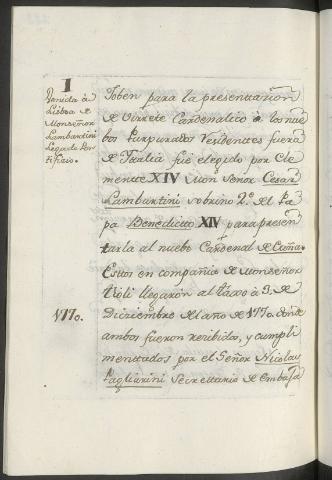 I
Venida à
Lisboa de
Monseñor
Lambartini
Legado Pon
tificio.
Joben para la presentacion
de Virrete Cardenalicio à los nue
bos Purpurados Residentes fuera
de Italia fue elegido por Cle
mente XIV Mon Señor Cesar
Lambartini sobrino 2º del Pa
pa Benedicto XIV para presen
tarla al nuebo Cardenal de Cuña.
Estos en compañia de Monseñor
Tioli llegaron al Taxo à 3. de
1770.
Diciembre del año de 1770. donde
ambos fueron recibidos, y cumpli
mentados por el Señor Nicolas
Pagliarini Secretario de Embaja